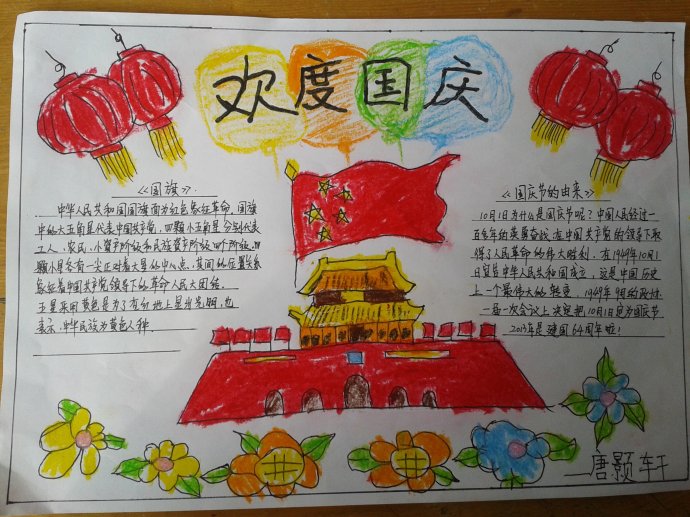 欢度国庆
《国旗》
中华人民共和国国旗面为红色象征革命，国旗
中的大五角星代表中国共产党，四颗小五角星分别代表
工人、农民、小资产阶级和民族资产阶级四个阶级，四
颗小星各有一尖正对着大星的中心点，其间的位置关系
象征着中国共产党领导下的革命人民大团结。
五星采用黄色是为了在红地上显出光明，也
表示中华民族为黄色人种
《国庆节的由来》
10月1日为什么是国庆节呢？中国人民经过一
百多年的英勇奋战，在中国共产党的领导下取
得了人民革命的伟大胜利，在1949年10月1
日宣告中华人民共和国成立，这是中国历史
上一个最伟大的转变，1949年
一届一次会议上决定把10月1日定为国庆节
2013年是建国64周年啦！
唐颢轩